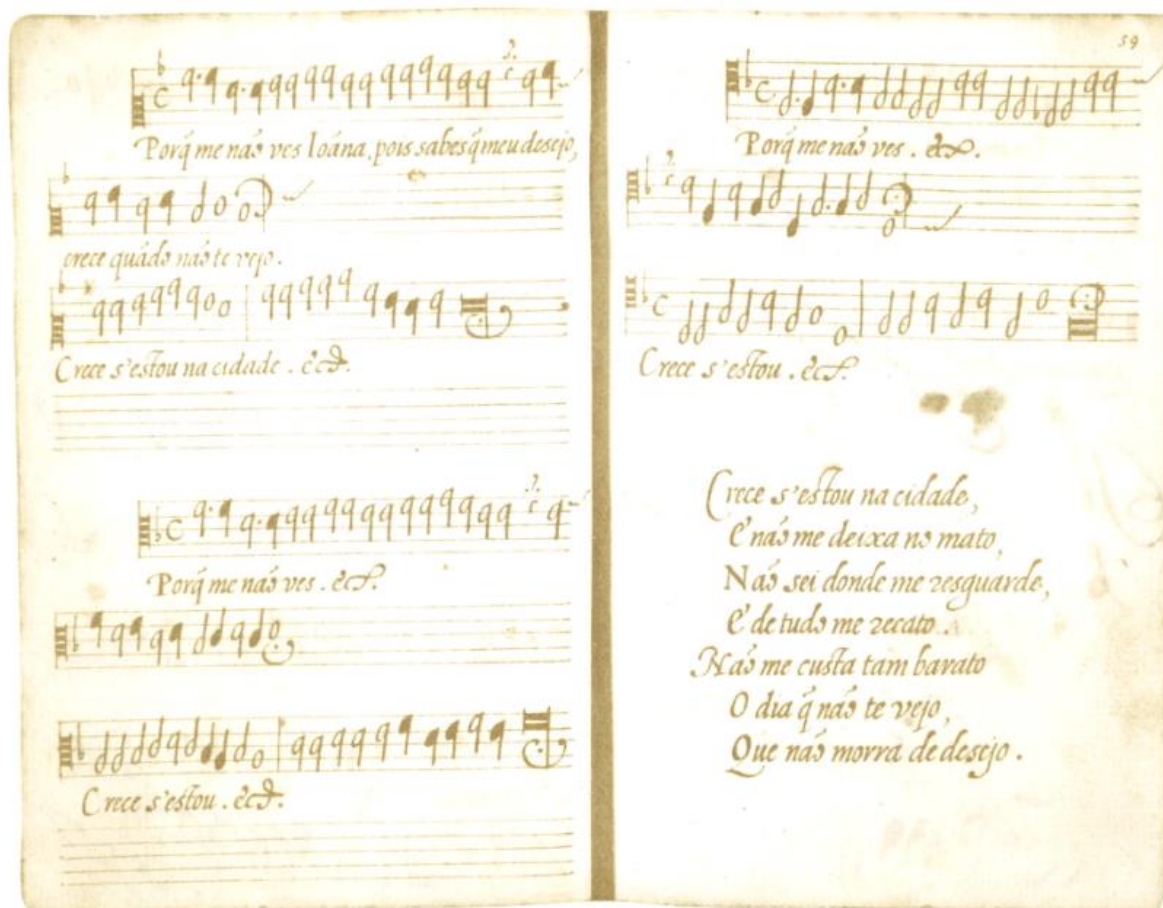 Porq̃ me não ves Ioãna, pois sabes q̃ meu desejo,
crece quãdo não te vejo.
Crece s'estou na cidade. &c.
Porq̃ me não ves. &c.
Crece s'estou. &c.
59
Porq̃ me não ves. &c.
Crece s'estou. &c.
Crece s'estou na cidade,
E não me deixa no mato,
Não sei donde me resguarde,
E de tudo me recato.
Não me custa tam barato
O dia q̃ não te vejo,
Que não morra de desejo.